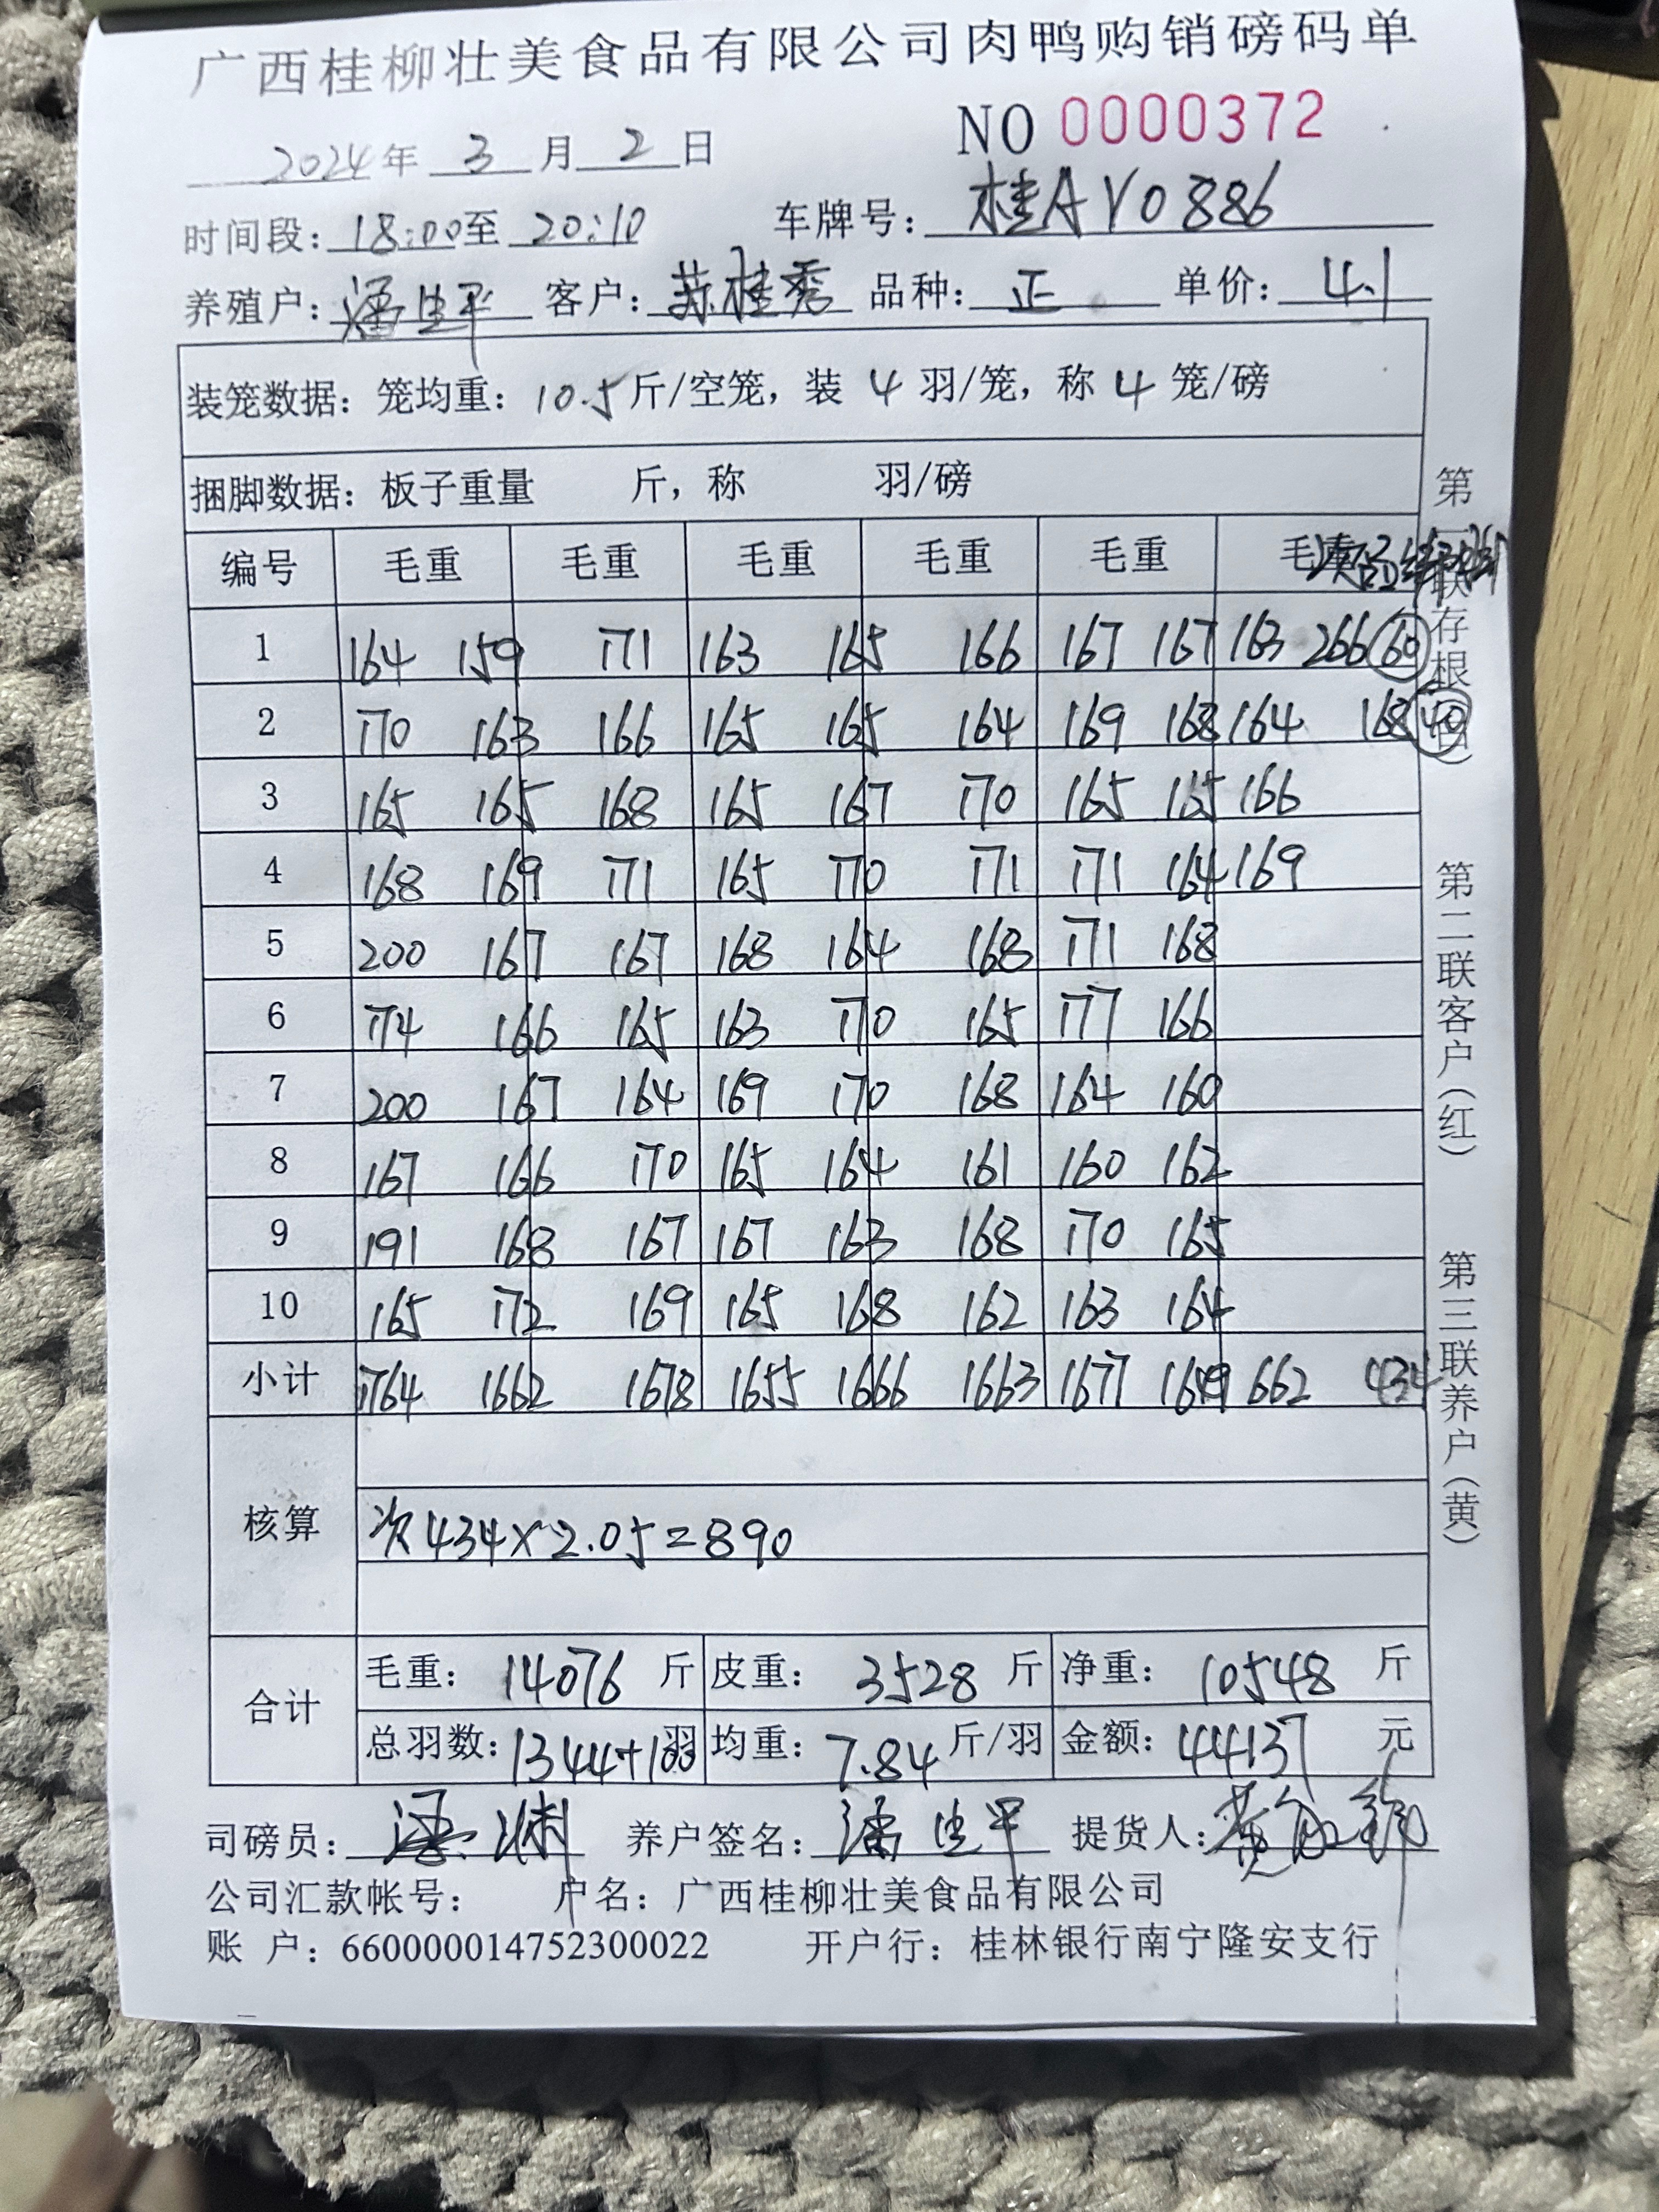 广西桂柳壮美食品有限公司肉鸭购销磅码单
NO 0000372
2024年 3 月 2 日
时间段: 18:00至 20:10 车牌号: 桂AY0886
养殖户: 潘生平 客户: 苏桂秀 品种: 正 单价: 4.1
装笼数据: 笼均重: 10.5斤/空笼, 装 4 羽/笼, 称 4 笼/磅
捆脚数据: 板子重量 斤, 称 羽/磅
编号 毛重 毛重 毛重 毛重 毛重
1 164 159 171 163 165 166 167 167 163 266 60
2 170 163 166 165 165 164 169 168 164 168 40
3 165 165 168 165 167 170 165 165 166
4 168 169 171 165 170 171 171 164 169
5 200 167 167 168 164 168 171 168
6 174 166 165 163 170 165 177 166
7 200 167 164 169 170 168 164 160
8 167 166 170 165 164 161 160 162
9 191 168 167 167 163 168 170 165
10 165 172 169 165 168 162 163 164
小计 1764 1662 1678 1655 1666 1663 1677 1649 662 434
核算
次434×2.05=890
合计
毛重: 14076 斤 皮重: 3528 斤 净重: 10548 斤
总羽数: 1344+100羽 均重: 7.84 斤/羽 金额: 44137 元
司磅员: 养户签名: 潘生平 提货人:
公司汇款帐号: 户名: 广西桂柳壮美食品有限公司
账 户: 660000014752300022 开户行: 桂林银行南宁隆安支行
第二联客户(红)
第三联养户(黄)